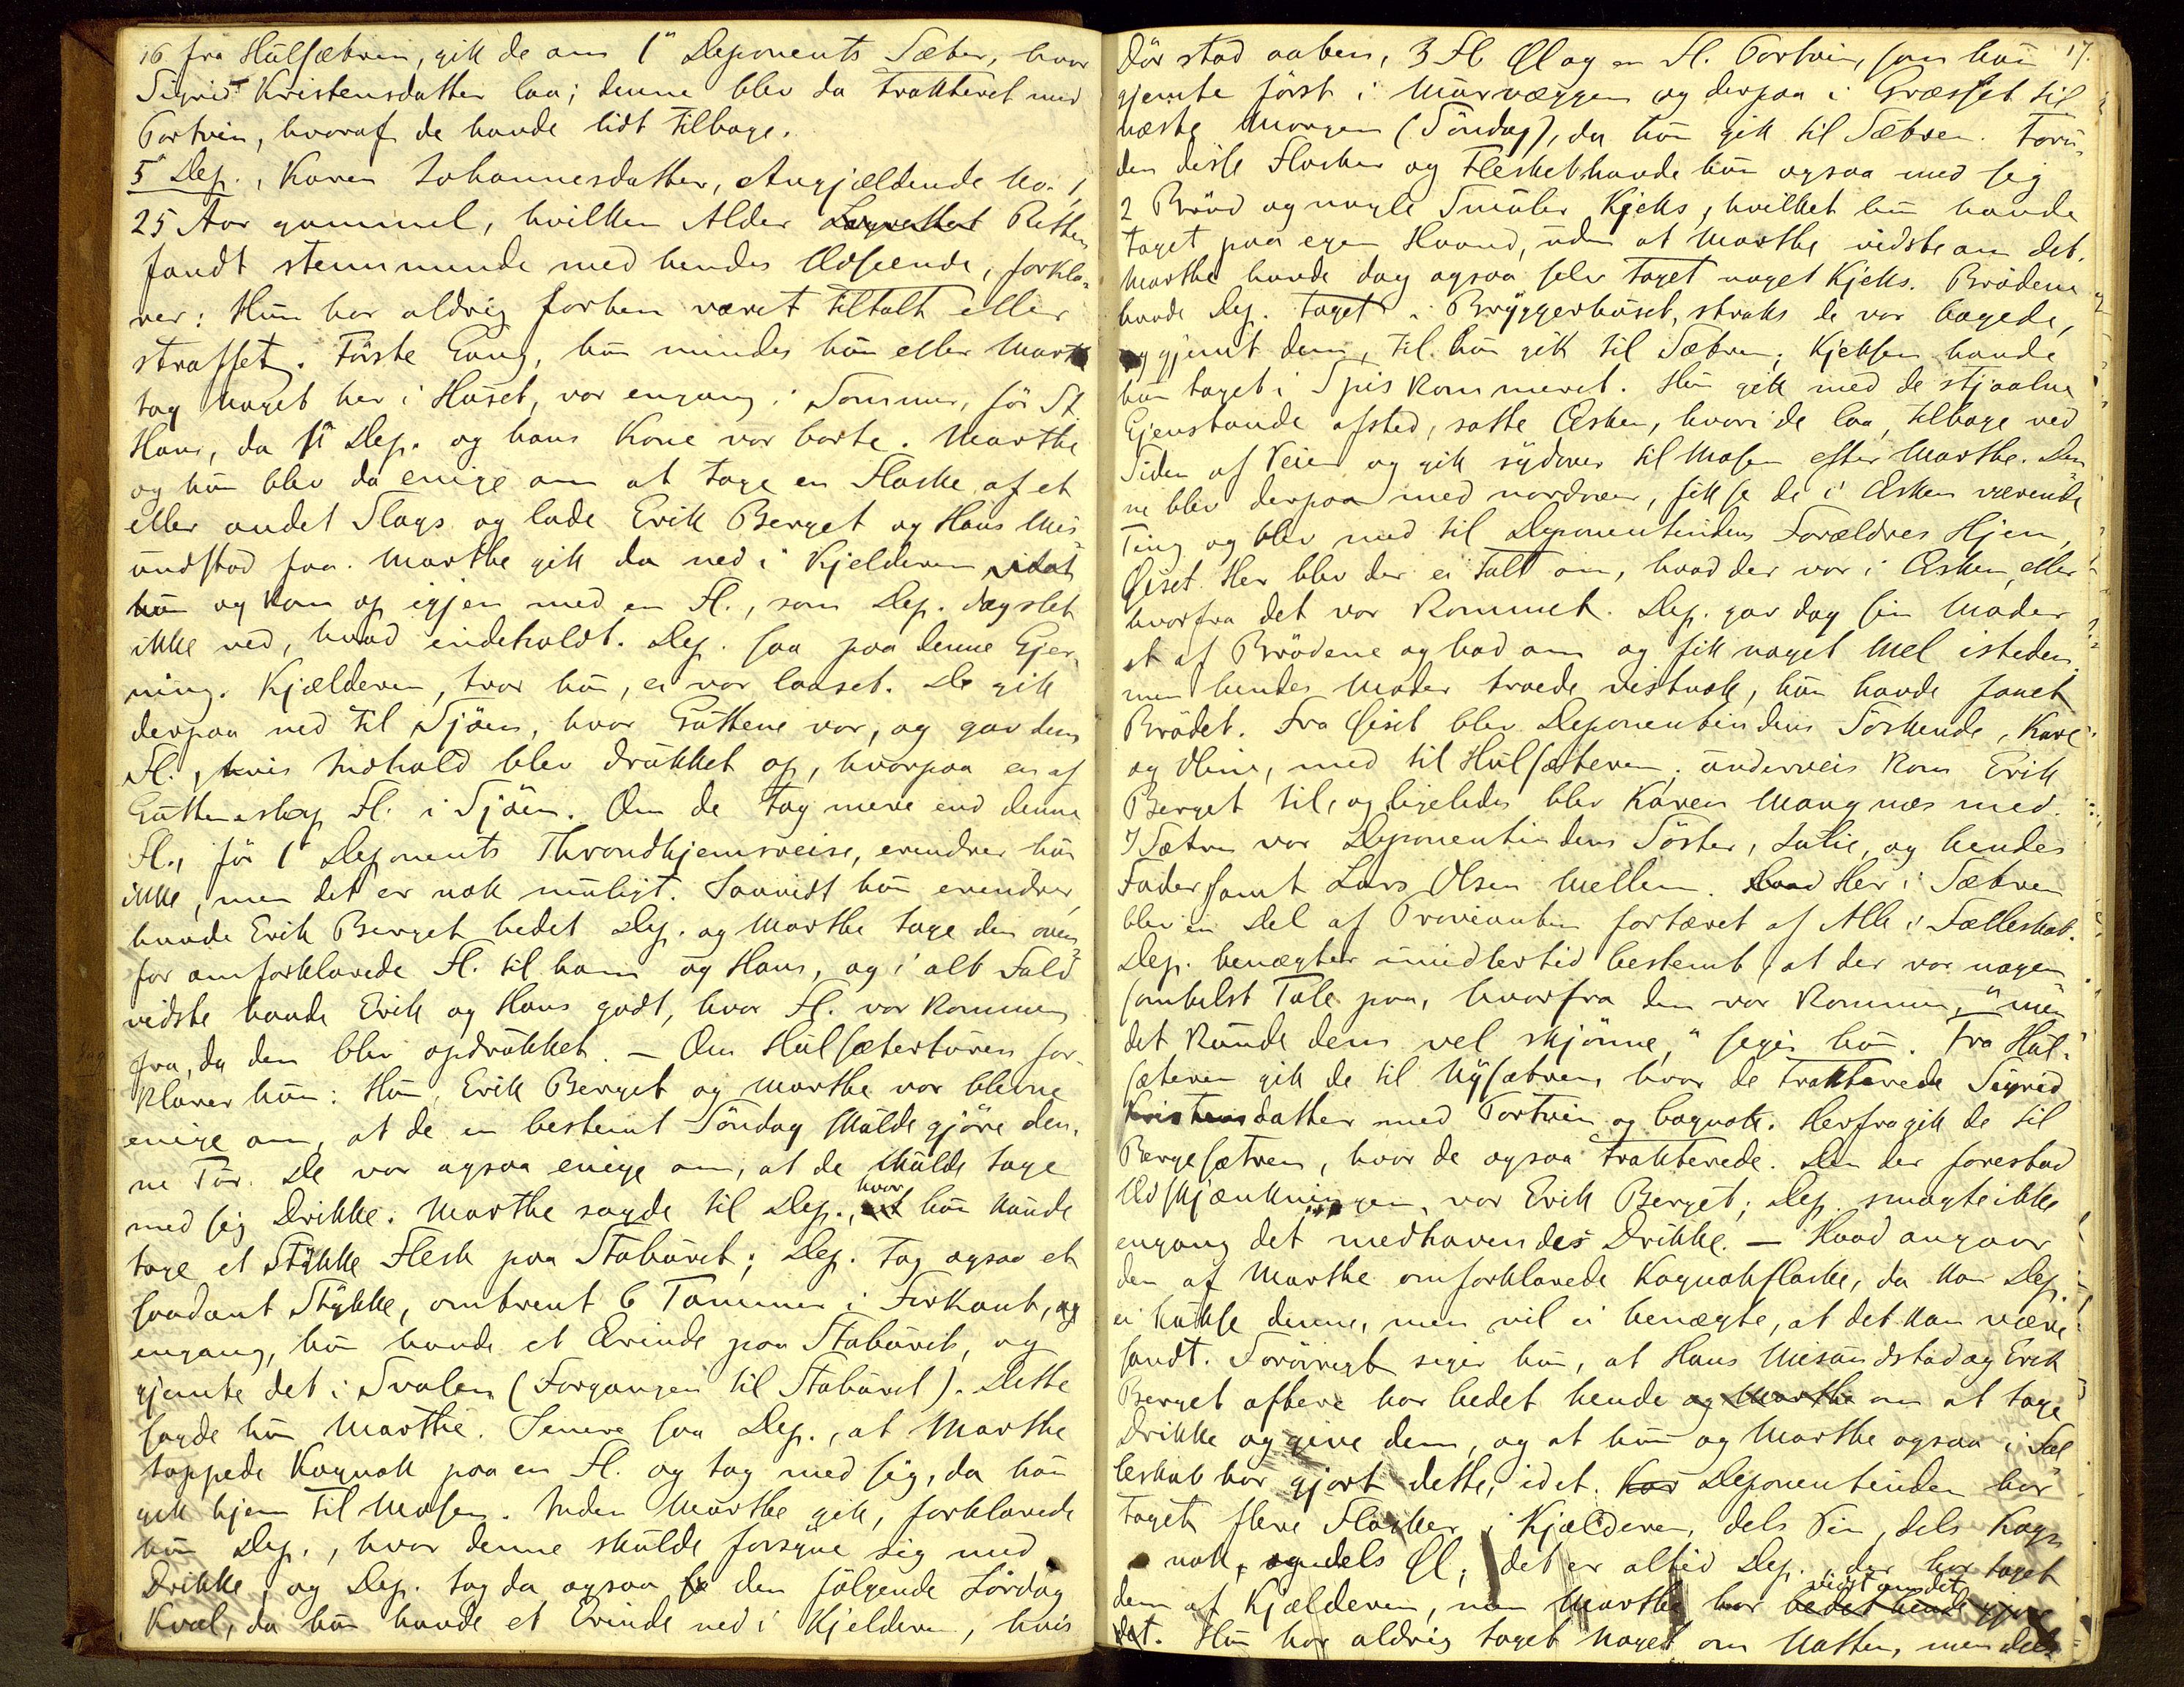 16 fra Hülsætren, gik de om 1ste Deponents Sæter, hvor
Sigrid Kristensdatter laa; denne blev da trakteret med
Portvin, hvoraf de havde lidt tilbage.
5te Dep., Karen Johannesdatter, Angjældende No. 1,
25 Aar gammel, hvilken Alder Lagrettet Retten
fandt stemmende med hendes Udseende, forkla-
rer: Hün har aldrig forhen været tiltalt eller
straffet. Første Gang, hün mindes hün eller Marthe
tog noget her i Hüset, var engang i Sommer, før St
Hans, da 1ste Dep. og hans Kone var borte. Marthe
og hün blev da enige om at tage en Flaske af et
eller andet Slags og lade Erik Berget og Hans Mis-
ündstad faa. Marthe gik da ned i Kjelderen idet
hün og kom op igjen med en Fl., som Dep. dog slet
ikke ved, hvad indeholdt. Dep. saa paa denne Gjer-
ning. Kjælderen, tror hün, ei var laaset. De gik
derpaa ned til Sjøen, hvor Gütterne var, og gav dem
Fl., hvis Indhold blev drükket op, hvorpaa en af
Gütterne slog Fl. i Sjøen. Om de tog mere end denne
Fl., før 1ste Deponents Throndhjemsreise, erindrer hün
ikke, men det er nok müligt. Saavidt hün erindrer,
havde Erik Berget bedet Dep. og Marthe tage den oven-
for omforklarede Fl. til ham og Hans, og i alt Fald
vidste baade Erik og Hans godt, hvor Fl. var kommen
fra, da den blev opdrükket. — Om Hülsætertüren for-
klarer hün: Hün, Erik Berget og Marthe var blevne
enige om, at de en bestemt Søndag skülde gjøre den-
ne Tür. De var ogsaa enige om, at de skülde tage
med sig Drikke. Marthe sagde til Dep., at hvor hün künde
tage et Stykke Flesk paa Stabüret; Dep. tog ogsaa et
saadant Stykke, ombrent 6 Tommer i Firkant, og
engang, hün havde et Ærinde paa Stabüret, og
gjemte det i Svalen (Forgangen til Stabüret). Dette
sagde hün Marthe. Senere saa Dep., at Marthe
tappede Kognak paa en Fl. og tog med sig, da hün
gik hjem til Mosen. Inden Marthe gik, forklarede
hün Dep., hvor denne skülde forsyne sig med
Drikke, og Dep. tog da ogsaa den følgende Lørdag
Kvæl, da hün havde et Ærinde ned i Kjelderen, hvis
17.
Dør stod aaben, 3 Fl. Øl og en Fl. Portvin, som hün
gjemte først i Mürvæggen og derpaa i Græsset til
næste Morgen (Søndag), da hün gik til Sætren. Forü-
den disse Flasker og Flesket havde hün ogsaa med sig
2 Brød og nogle Smüler Kjeks, hvilket hün havde
taget paa egen Haand, üden at Marthe vidste om det.
Marthe havde dog ogsaa selv taget noget Kjeks. Brødene
havde Dep. taget i Bryggerhüset, straks de var bagede,
og gjemt dem, til hün gik til Sætren; Kjeksen havde
hün taget i Spiskammeret. Hün gik med de stjaalne
Gjenstande afsted, satte Æsken, hvori de laa, tilbage ved
Siden af Veien og gik sydover til Mosen efter Marthe. Den-
ne blev derpaa med nordover, fik se de i Æsken værende
Ting og blev med til Deponentindens Forældres Hjem,
Øiset. Her blev der ei talt om, hvad der var i Æsken, eller
hvorfra det var kommet. Dep. gav dog sin Moder
et af Brødene og bad om og fik noget Mel isteden,
men hendes Moder troede vistnok, hün havde faaet
Brødet. Fra Øiset blev Deponentindens Søskende, Karl
og Oline, med til Hülsæteren; ünderveis kom Erik
Berget til, og ligeledes blev Karen Mangnæs med.
I Sætren var Deponentindens Søster, Julie, og hendes
Fader samt Lars Olsen Mellem. Hvad Her i Sætren
blev en Del af Provianten fortæret af Alle i Fælleskab.
Dep. benægter imidlertid bestemt, at der var nogen
somhelst Tale paa, hvorfra den var kommen, "men
det künde dem vel skjønne," siger hün. Fra Hül-
sæteren gik de til Nysætren, hvor de trakterede Sigrid
Kristensdatter med Portvin og Cognak. Herfra gik de til
Bergesætren, hvor de ogsaa trakterede. Den der forestod
Udskjænkningen, var Erik Berget; Dep. smagte ikke
engang det medhavendes Drikke. — Hvad angaar
den af Marthe omforklarede Kognakflaske, da kan Dep.
ei hükse denne, men vil ei benægte, at det kan være
sandt. Forøvrigt siger hün, at Hans Misündstad og Erik
Berget oftere har bedet hende og Marthe om at tage
Drikke og give dem, og at hün og Marthe ogsaa i Fæl
leskab har gjort dette, idet har Deponentinden har
taget flere Flasker i Kjælderen, dels Vin, dels Kog-
nak, og dels Øl; det er altid Dep., der har taget
dem af Kjælderen, men Marthe har vidst om det bedet hende gjøre
det. Hün har aldrig taget noget om Natten, men dels